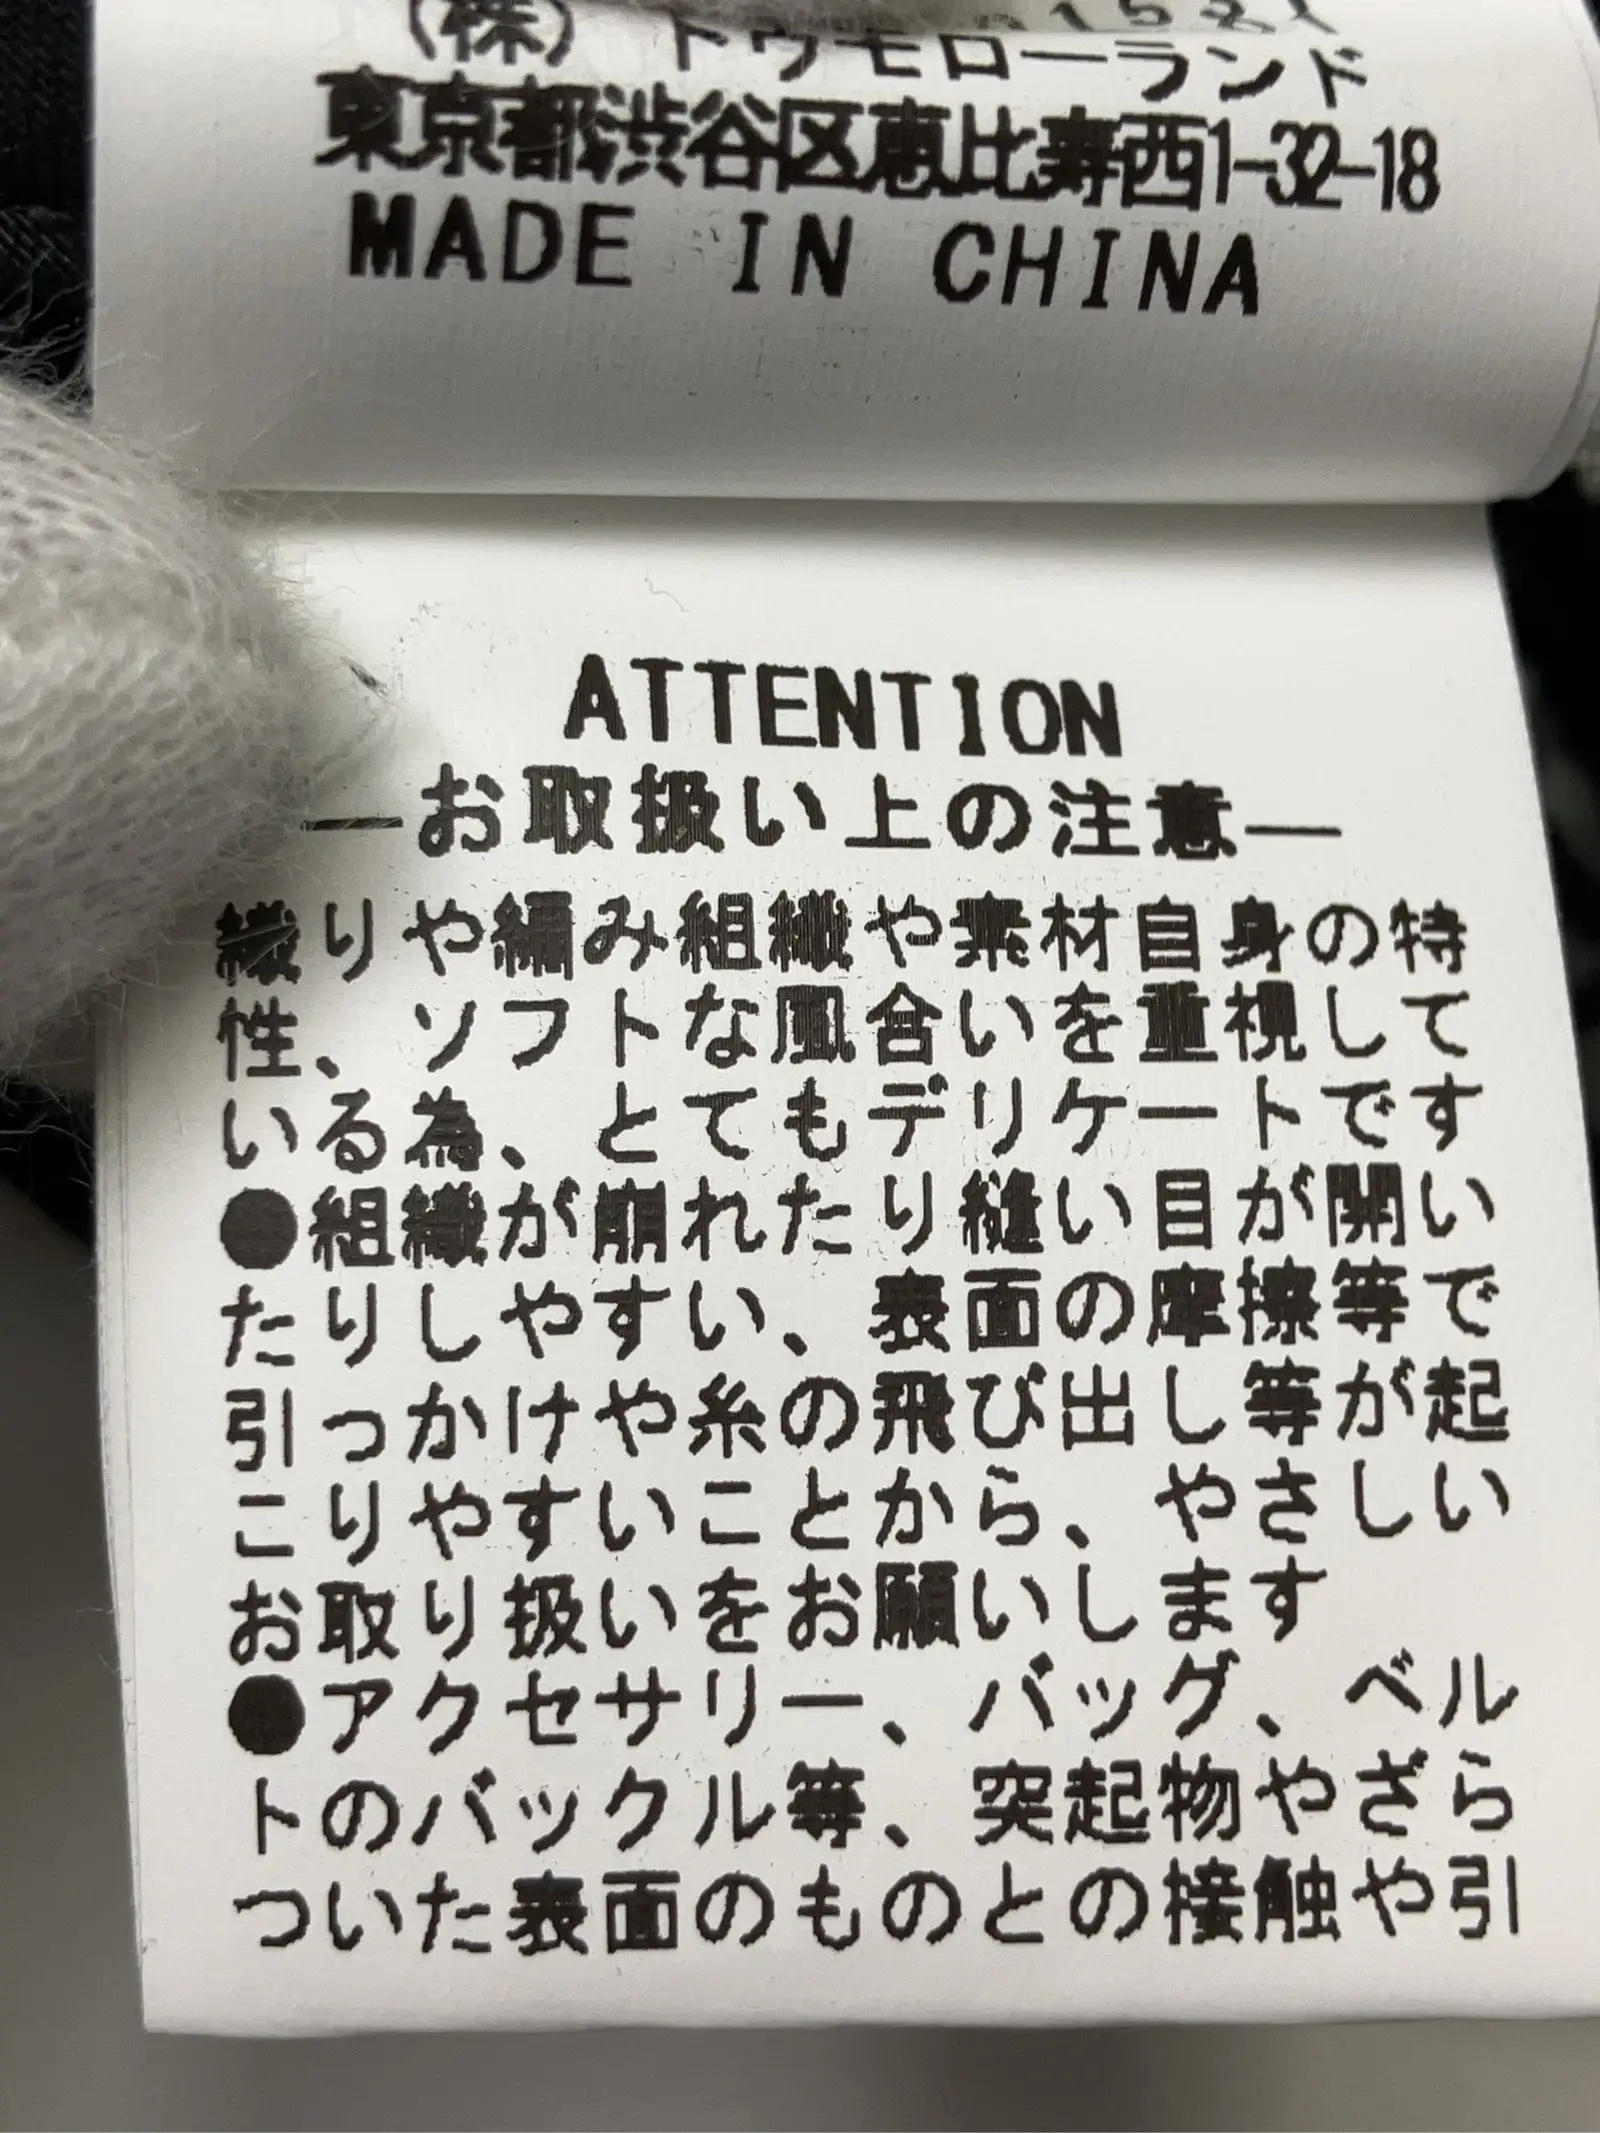 (株)トゥモローランド
東京都渋谷区恵比寿西1-32-18
MADE IN CHINA
ATTENTION
―お取扱い上の注意―
織りや編み組織や素材自身の特
性、ソフトな風合いを重視して
いる為、とてもデリケートです
●組織が崩れたり縫い目が開い
たりしやすい、表面の摩擦等で
引っかけや糸の飛び出し等が起
こりやすいことから、やさしい
お取り扱いをお願いします
●アクセサリー、バッグ、ベル
トのバックル等、突起物やざら
ついた表面のものとの接触や引